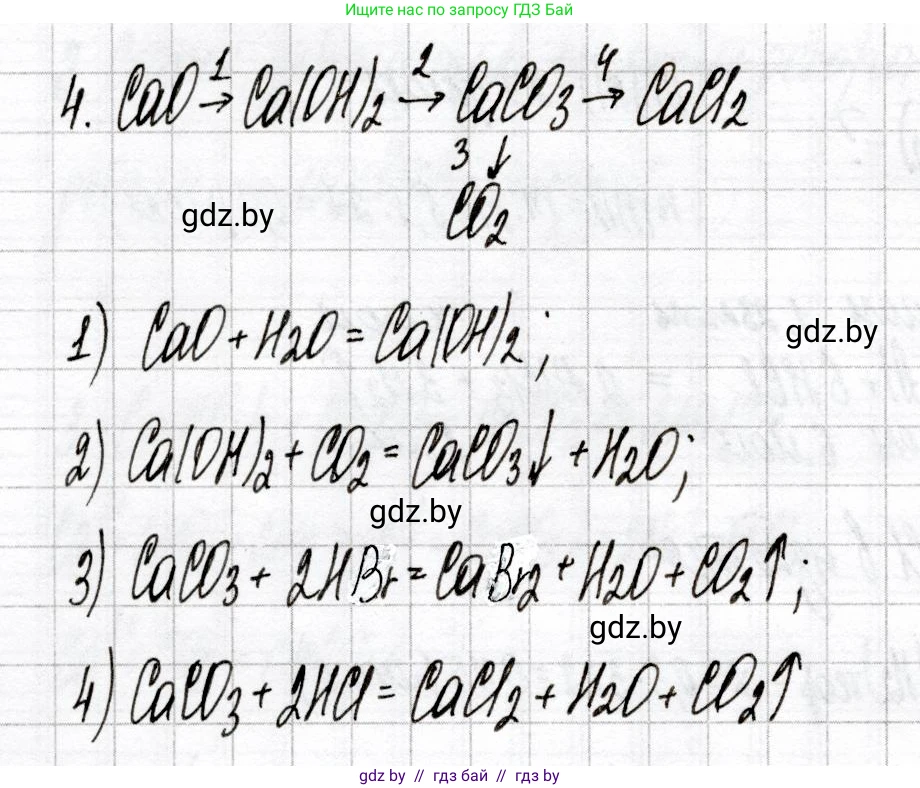 Ищите нас по запросу ГДЗ Бай
4. CaO 1→ Ca(OH)2 2→ CaCO3 4→ CaCl2
3 ↓
CO2
gdz.by
1) CaO + H2O = Ca(OH)2 ;
gdz.by
2) Ca(OH)2 + CO2 = CaCO3↓ + H2O;
gdz.by
3) CaCO3 + 2HBr = CaBr2 + H2O + CO2↑;
gdz.by
4) CaCO3 + 2HCl = CaCl2 + H2O + CO2↑
gdz.by // гдз бай // гдз by